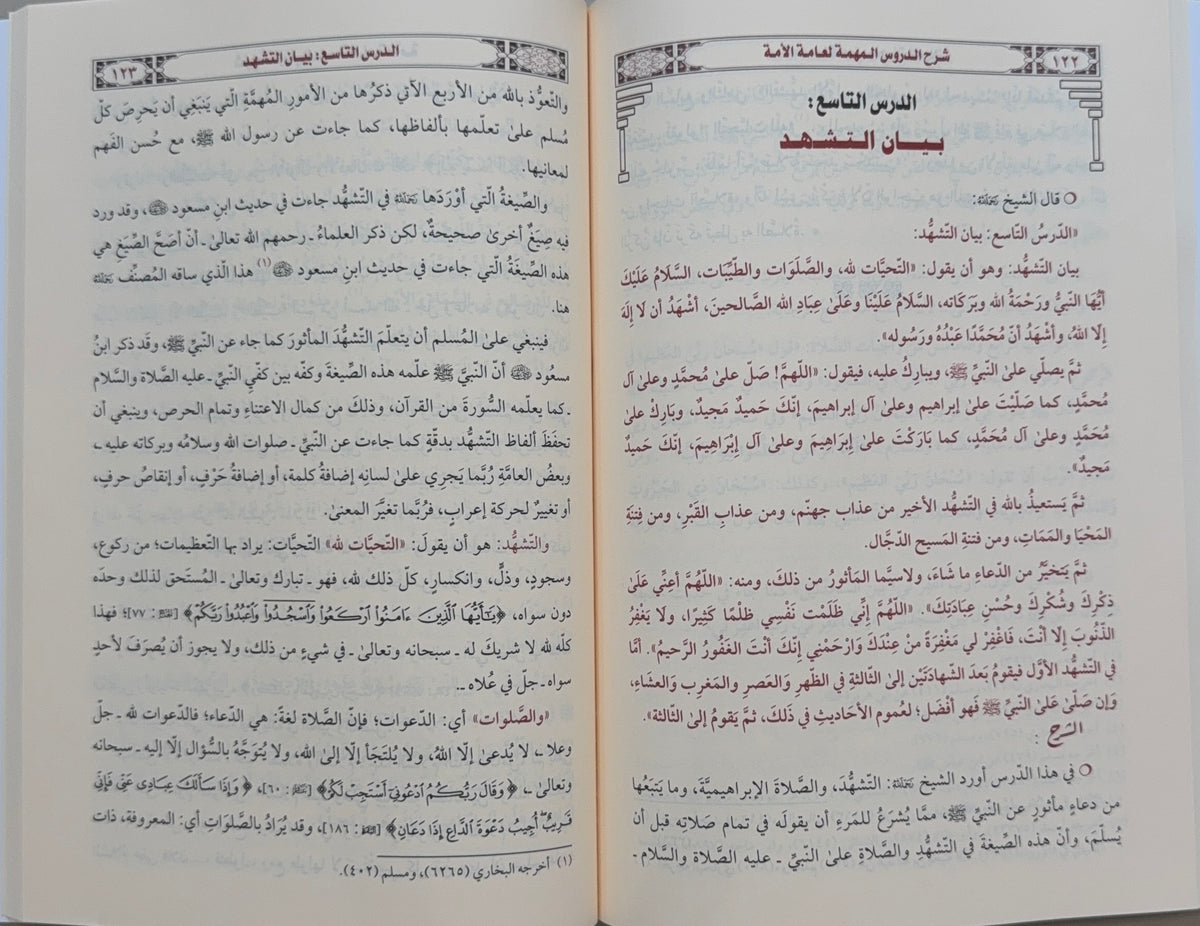 ١٢٢
شرح الدروس المهمة لعامة الأمة
الدرس التاسع:
بيـان التـشهـد
قال الشيخ رَحِمَهُ اللهُ:
«الدّرسُ التّاسع: بيان التشهُّد:
بيان التشهُّد: وهو أن يقول: «التّحيَّات لله، والصَّلَوات والطّيِّبَات، السَّلَامُ عَلَيْكَ
أيُّهَا النّبيُّ ورَحْمَةُ الله وبَرَكَاته، السَّلامُ عَلَيْنَا وعَلَىٰ عِبَادِ الله الصَّالحينَ، أشْهَدُ أن لا إلَهَ
إلّا اللهُ، وأشْهَدُ أنّ مُحَمَّدًا عَبْدُهُ ورَسُوله».
ثمَّ يصلّي علىٰ النّبيِّ ﷺ، ويباركُ عليه، فيقول: «اللّهمَّ! صَلِّ علىٰ مُحمَّدٍ وعلىٰ آل
مُحمَّدٍ، كما صَلّيْتَ علىٰ إبراهيم وعلىٰ آل إبراهيمَ، إنّكَ حَميدٌ مَجيدٌ، وبَارِكْ علىٰ
مُحَمَّدٍ وعلىٰ آل مُحَمَّدٍ، كما بَارَكْتَ علىٰ إبْرَاهِيمَ وعلىٰ آل إِبْرَاهِيمَ، إنّكَ حَميدٌ
مَجيدٌ».
ثمَّ يَستعيذُ بالله في التّشهُّد الأخير من عذاب جهنّم، ومن عذابِ القَبْرِ، ومن فتنةِ
المَحْيَا والمَمَاتِ، ومن فتنةِ المَسيح الدّجَّال.
ثمَّ يَتَخيَّرُ من الدّعاءِ ما شَاءَ، ولاسيَّما المَأثورُ من ذلكَ، ومنه: «اللّهُمَّ أعِنِّي عَلَىٰ
ذِكْرِكَ وشُكْرِكَ وحُسْنِ عِبَادَتِكَ». «اللّهُمَّ إِنِّي ظَلَمْت نَفْسِي ظلْمًا كَثِيرًا، ولا يَغْفِرُ
الذّنُوبَ إلّا أنْتَ، فَاغْفِرْ لي مَغْفِرَةً منْ عِنْدَكَ وَارْحَمْنِي إنّكَ أنْتَ الغَفُورُ الرَّحيمُ». أمَّا
في التشهُّد الأوَّل فيقومُ بَعدَ الشّهادَتَيْنِ إلىٰ الثّالثةِ في الظهرِ والعَصرِ والمَغربِ والعشَاءِ،
وإن صَلّىٰ عَلىٰ النّبيِّ ﷺ فهو أفْضَل؛ لعُموم الأحَاديثِ في ذَلكَ، ثمَّ يَقومُ إلىٰ الثّالثة».
الشرح :
في هذا الدّرس أورد الشيخ رَحِمَهُ اللهُ: التّشهُّدَ، والصَّلاةَ الإبراهيميَّةَ، وما يَتبَعُها
من دعاءٍ مأثورٍ عن النّبيِّ ﷺ، ممَّا يُشرَعُ للمَرءِ أن يقولَه في تمام صَلاته قبل أن
يُسلّمَ، وأنّ هذه الصِّيغة في التشهُّدِ والصَّلاةِ علىٰ النّبيِّ ـ عليه الصَّلاة والسَّلام ـ
الدّرس التاسع: بيان التشهد
١٢٣
والتّعوُّذ بالله مِن الأربع الآتي ذكرُها من الأمورِ المُهمَّةِ الّتي يَنبَغي أن يَحرِصَ كلّ
مُسلم علىٰ تعلّمها بألفاظها، كما جاءت عن رسول الله ﷺ، مع حُسن الفَهم
لمعانيها.
والصِّيغةُ الّتي أوْرَدَها رَحِمَهُ اللهُ في التّشهُّد جاءت في حديث ابن مسعود رَضِيَ اللهُ عَنْهُ، وقد ورد
فيه صِيَغٌ أخرىٰ صحيحةٌ، لكن ذكر العلماءُ ـ رحمهم الله تعالىٰ ـ أنّ أصَحَّ الصِّيَغِ هي
هذه الصِّيغَةُ الّتي جاءت في حديث ابنِ مسعود رَضِيَ اللهُ عَنْهُ(١) هذا الّذي ساقه المُصنِّف رَحِمَهُ اللهُ
هنا.
فينبغي علىٰ المُسلم أن يتعلّمَ التّشهُّدَ المأثورَ كما جاء عن النّبيِّ ﷺ، وقد ذكر ابنُ
مسعُود رَضِيَ اللهُ عَنْهُ أنّ النّبيَّ ﷺ علّمه هذه الصِّيغةَ وكفّه بين كفّي النّبيِّ ـ عليه الصَّلاة والسَّلام
ـ كما يعلّمه السُّورةَ من القرآن، وذلكَ من كمال الاعتناءِ وتمام الحرص، وينبغي أن
تحفَظَ ألفاظ التّشهُّد بدقّةٍ كما جاءت عن النّبيِّ ـ صلوات الله وسلامُه وبركاته عليه ـ،
وبعضُ العامَّةِ رُبَّما يَجرِي علىٰ لسانِه إضافةُ كلمة، أو إضافةُ حَرْفٍ، أو إنقاصُ حرفٍ،
أو تغييرٌ لحركة إعرابٍ، فرُبَّما تغيَّرَ المعنىٰ.
والتّشهُّد: هو أن يقولَ: «التّحيَّات لله» التّحيَّات: يراد بها التّعظيمات؛ من ركوع،
وسجودٍ، وذلٍّ، وانكسارٍ، كلّ ذلك لله، فهو ـ تبارك وتعالىٰ ـ المُستَحق لذلك وحدَه
دون سواه، ﴿يَٰٓأَيُّهَا ٱلَّذِينَ ءَامَنُوا۟ ٱرْكَعُوا۟ وَٱسْجُدُوا۟ وَٱعْبُدُوا۟ رَبَّكُمْ﴾ [الحج : ٧٧]؛ فهذا
كلّه لله لا شريكَ له ـ سبحانه وتعالىٰ ـ في شيءٍ من ذلك، ولا يجوز أن يُصرَفَ لأحدٍ
سواه ـ جلّ في عُلاه ـ.
«والصَّلوات» أي: الدّعوات؛ فإنّ الصَّلاة لغةً: هي الدّعاء؛ فالدّعوات لله ـ جلّ
وعلا ـ، لا يُدعىٰ إلّا اللهُ، ولا يُلتَجَأ إلّا إلىٰ الله، ولا يُتوَجَّهُ بالسُّؤال إلّا إليه ـ سبحانه
وتعالىٰ ـ، ﴿وَقَالَ رَبُّكُمُ ٱدْعُونِىٓ أَسْتَجِبْ لَكُمْ﴾ [غافر : ٦٠]، ﴿وَإِذَا سَأَلَكَ عِبَادِى عَنِّى فَإِنِّى
قَرِيبٌ أُجِيبُ دَعْوَةَ ٱلدَّاعِ إِذَا دَعَانِ﴾ [البقرة : ١٨٦]، وقد يُرَادُ بالصَّلَواتِ أي: المعروفة، ذات
(١) أخرجه البخاري (٦٢٦٥)، ومسلم (٤٠٢).